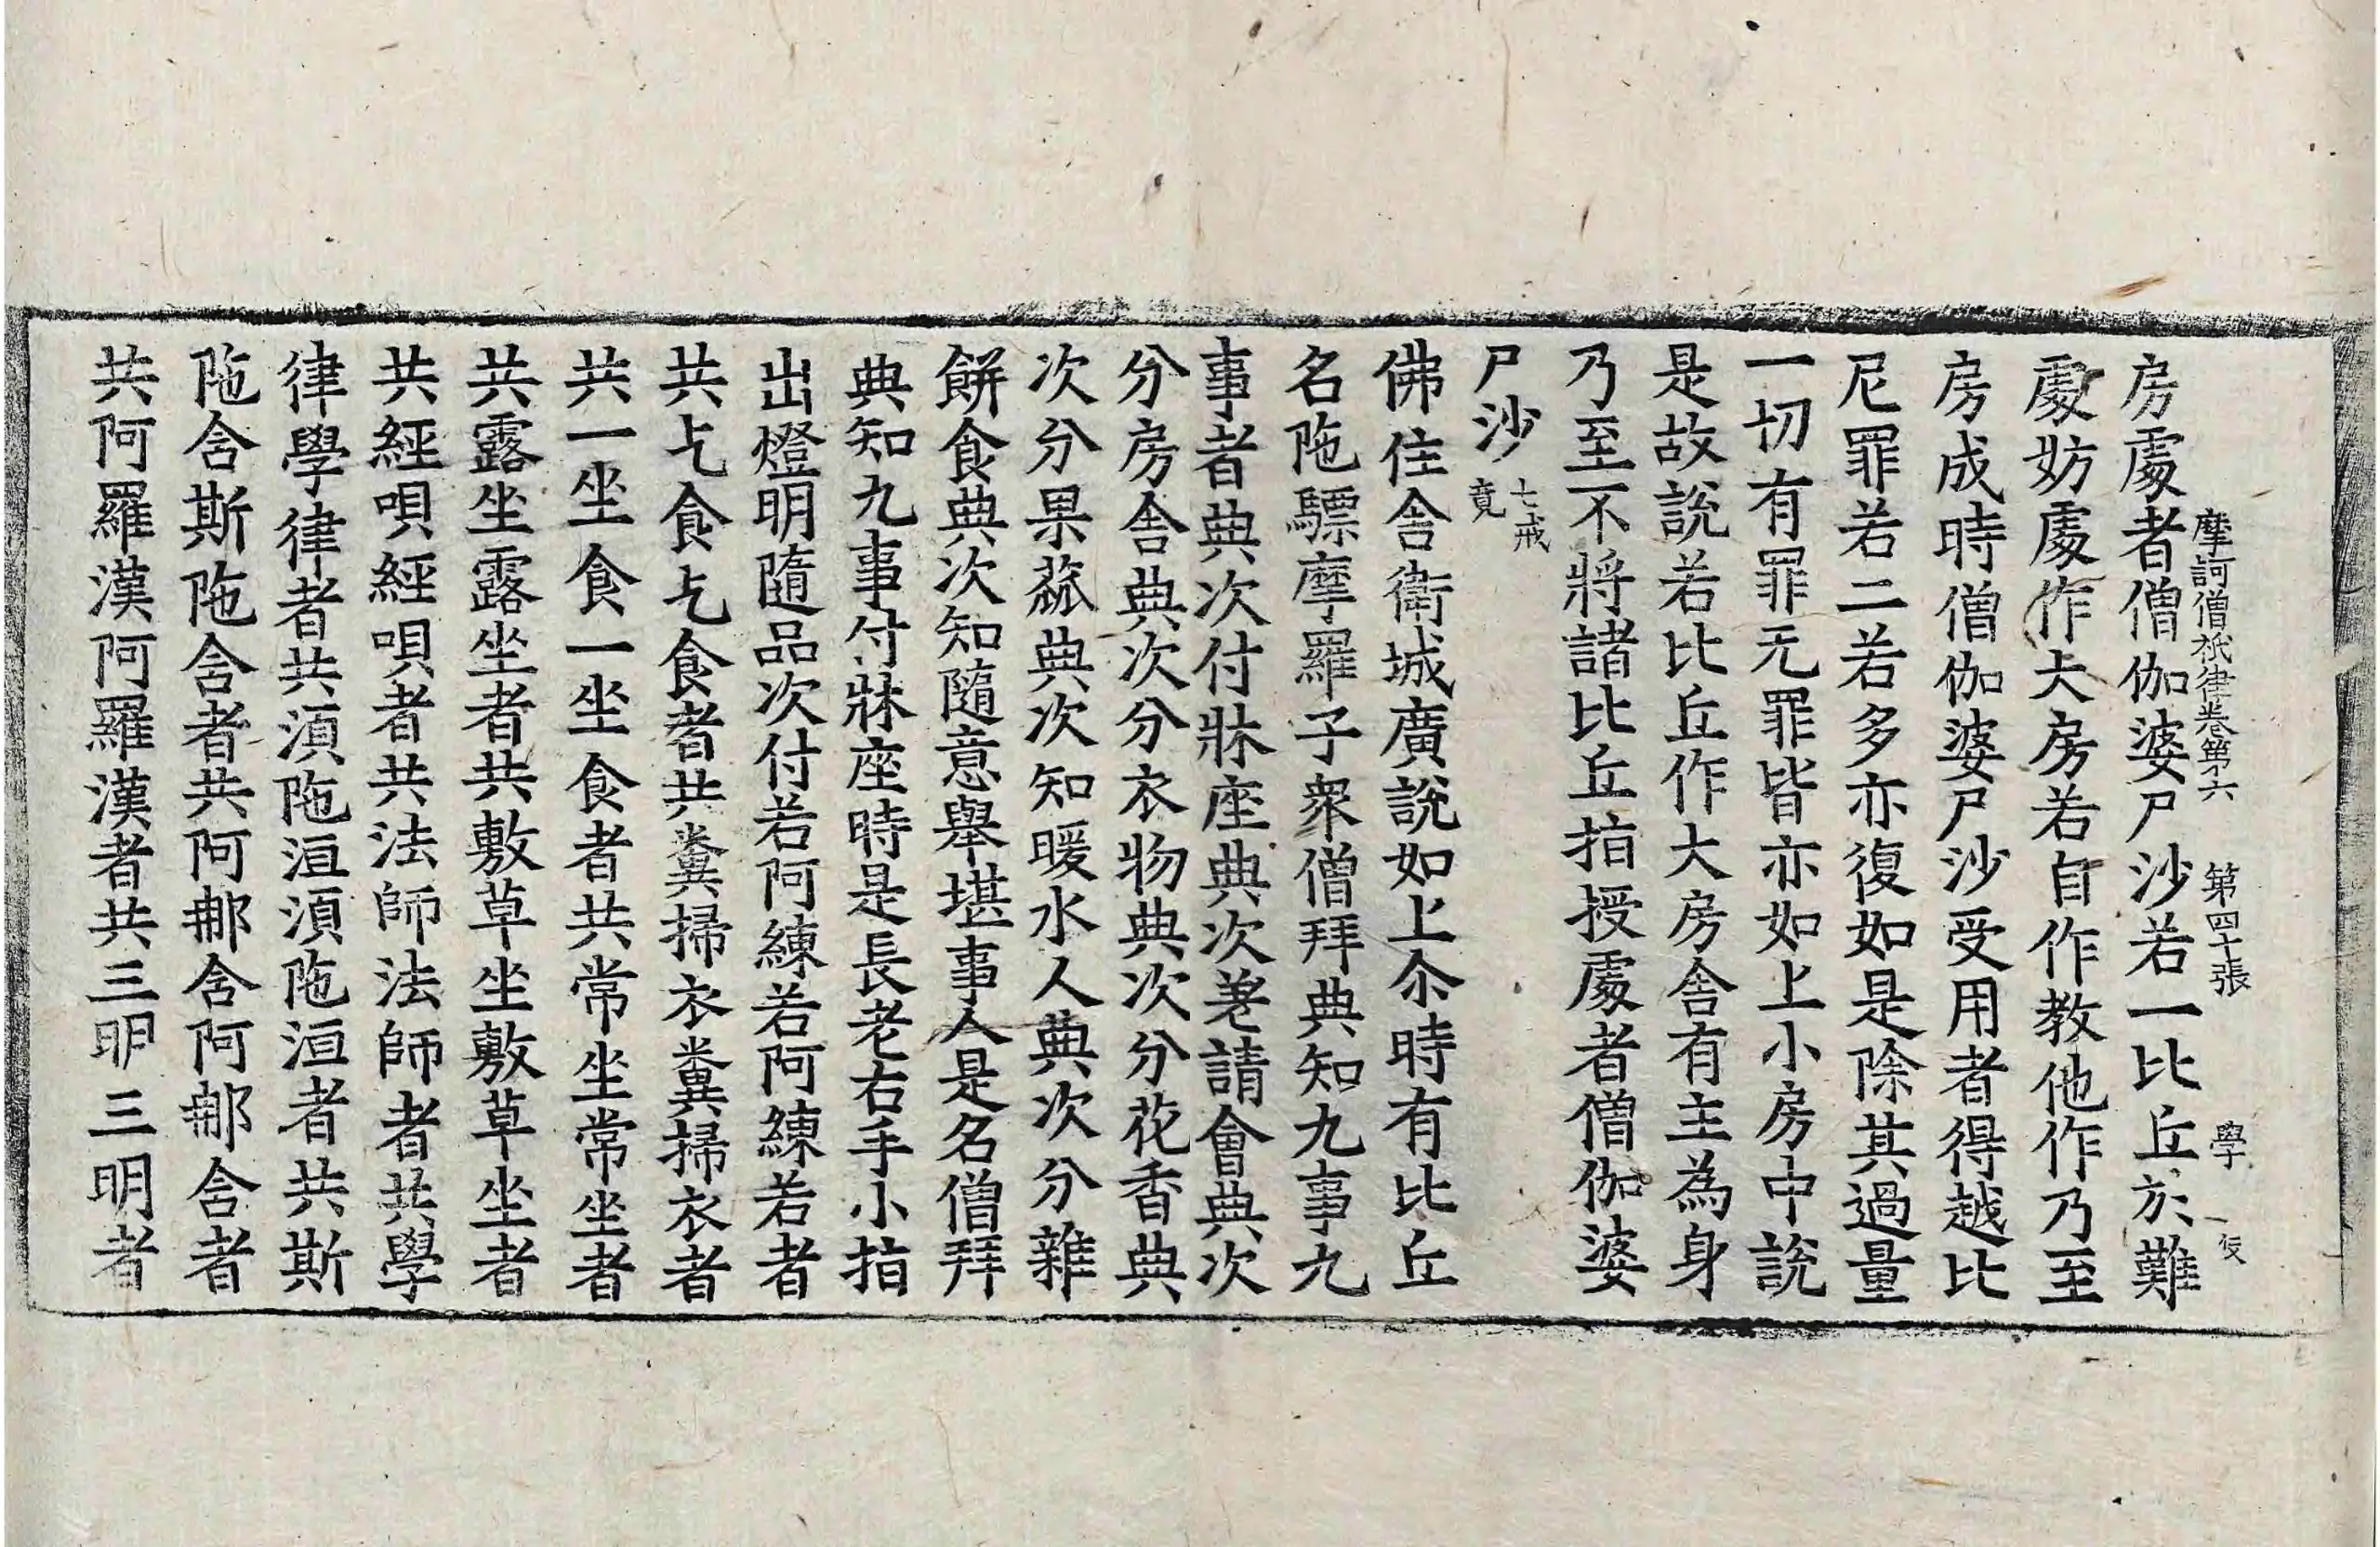 摩訶僧祇律卷第六 第四十張 學
房處者僧伽婆尸沙若一比丘於難
處妨處作大房若自作教他作乃至
房成時僧伽婆尸沙受用者得越比
尼罪若二若多亦復如是除其過量
一切有罪无罪皆亦如上小房中說
是故說若比丘作大房舍有主為身
乃至不將諸比丘指授處者僧伽婆
尸沙 七戒竟
佛住舍衛城廣說如上尒時有比丘
名陁驃摩羅子衆僧拜典知九事九
事者典次付牀座典次差請會典次
分房舍典次分衣物典次分花香典
次分果蓏典次知暖水人典次分雜
餅食典次知隨意舉堪事人是名僧拜
典知九事付牀座時是長老右手小指
出燈明隨品次付若阿練若阿練若者
共乞食乞食者共糞掃衣糞掃衣者
共一坐食一坐食者共常坐常坐者
共露坐露坐者共敷草坐敷草坐者
共經唄經唄者共法師法師者共學
律學律者共湏陁洹湏陁洹者共斯
陁舍斯陁舍者共阿那舍阿那舍者
共阿羅漢阿羅漢者共三明三明者